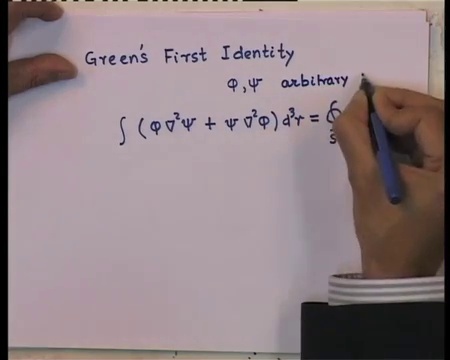 Green's First Identity
φ, ψ arbitrary
∫ (φ ∇²ψ + ψ ∇²φ) d³r = ∮
S